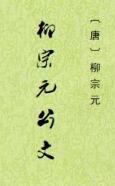 〔唐〕柳宗元
柳宗元公文